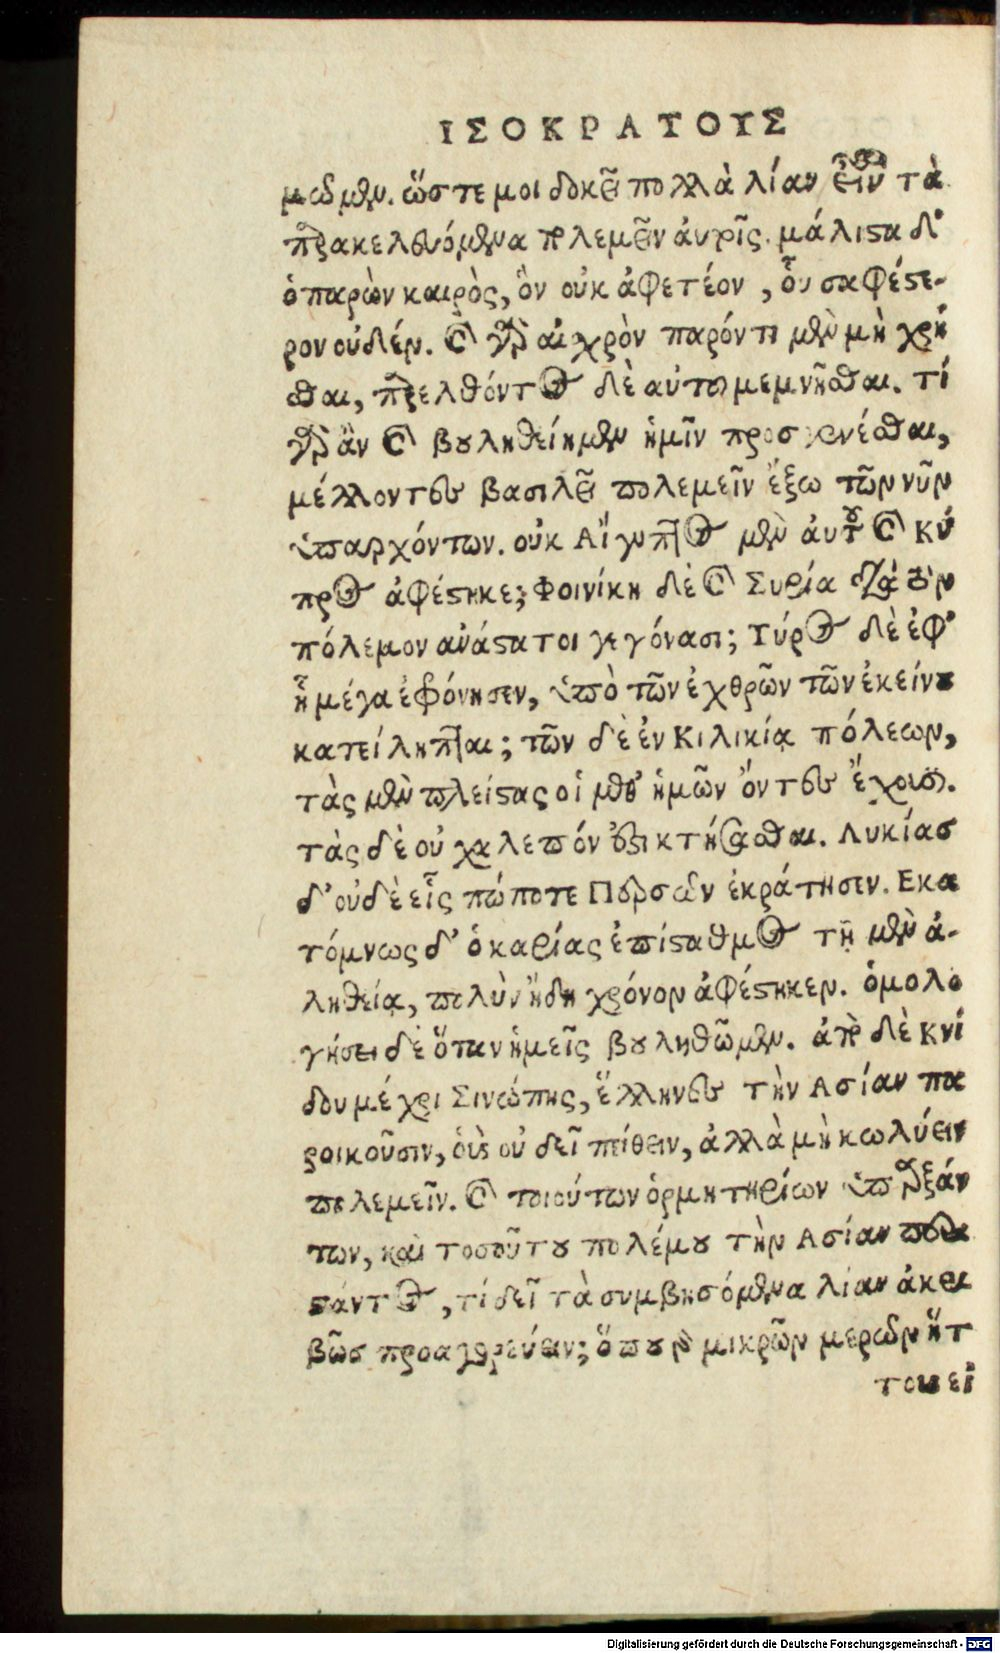 ΙΣΟΚΡΑΤΟΥΣ
μωδμεν. ὥστε μοι δοκεῖ πολλὰ λίαν εἶναι τὰ
παρακελευόμενα πολεμεῖν αὐτοῖς. μάλιστα δ'
ὁ παρὼν καιρὸς, ὃν οὐκ ἀφετέον, οὗ σαφέστε-
ρον οὐδέν. καὶ γὰρ αἰχρὸν παρόντι μὲν μὴ χρῆ
σθαι, παρελθόντος δὲ αὐτου μεμνῆσθαι. τί
γὰρ ἂν καὶ βουληθείημεν ἡμῖν προσγενέσθαι,
μέλλοντες βασιλεῖ πολεμεῖν ἔξω τῶν νῦν
ὑπαρχόντων. οὐκ Αἴγυπτος μὲν αὐτοῦ καὶ Κύ
προς ἀφέστηκε; Φοινίκη δὲ καὶ Συρία διὰ τὸν
πόλεμον ἀνάστατοι γεγόνασι; Τύρος δὲ ἐφ'
ᾗ μέγα ἐφρόνησεν, ὑπὸ τῶν ἐχθρῶν τῶν ἐκείνου
κατείληπται; τῶν δὲ ἐν Κιλικίᾳ πόλεων,
τὰς μὲν πλείστας οἱ μεθ' ἡμῶν ὄντες ἔχουσιν.
τὰς δὲ οὐ χαλεπόν ἐπικτήσασθαι. Λυκίας
δ' οὐδὲ εἷς πώποτε Περσῶν ἐκράτησεν. Εκα
τόμνως δ' ὁ καρίας ἐπίσταθμος τῇ μὲν ἀ-
ληθείᾳ, πολὺν ἤδη χρόνον ἀφέστηκεν. ὁμολο
γήσει δὲ ὅταν ἡμεῖς βουληθῶμεν. ἀπὸ δὲ Κνί
δου μέχρι Σινώπης, ἕλληνες τὴν Ασίαν πα
ροικοῦσιν, οὓς οὐ δεῖ πείθειν, ἀλλὰ μὴ κωλύειν
πολεμεῖν. καὶ τοιούτων ὁρμητηρίων ὑπαρξάν
των, καὶ τοσούτου πολέμου τὴν Ασίαν περι
στάντος, τί δεῖ τὰ συμβησόμενα λίαν ἀκρι
βῶς προαγορεύειν; ὅπου γὰρ μικρῶν μερῶν ἥτ
τους εἰ
Digitalisierung gefördert durch die Deutsche Forschungsgemeinschaft - DFG